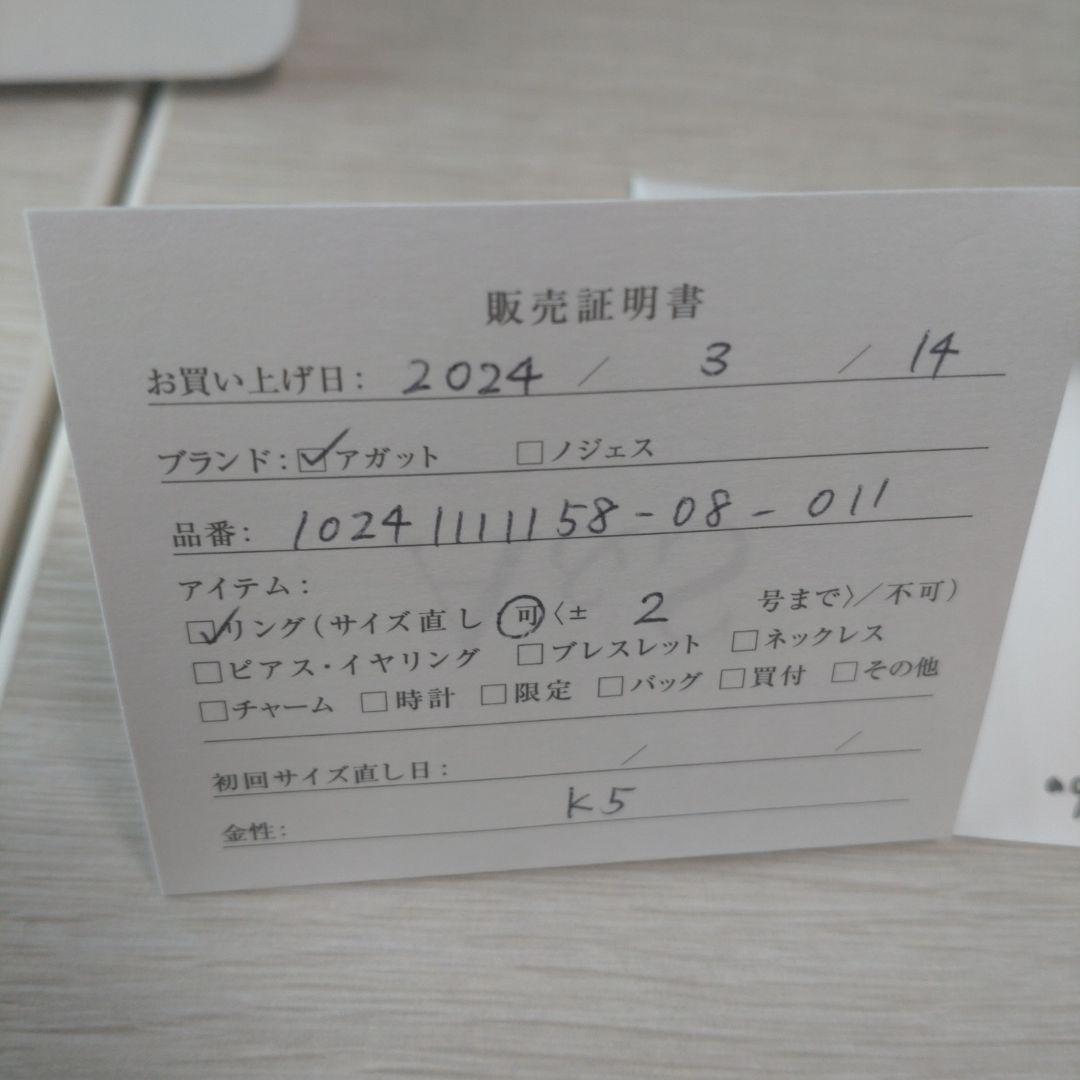 販売証明書
お買い上げ日： 2024 / 3 / 14
ブランド：☑アガット □ノジェス
品番： 10241111158-08-011
アイテム：
☑リング（サイズ直し 可〈± 2 号まで〉／不可）
□ピアス・イヤリング □ブレスレット □ネックレス
□チャーム □時計 □限定 □バッグ □買付 □その他
初回サイズ直し日： / /
金性： K5